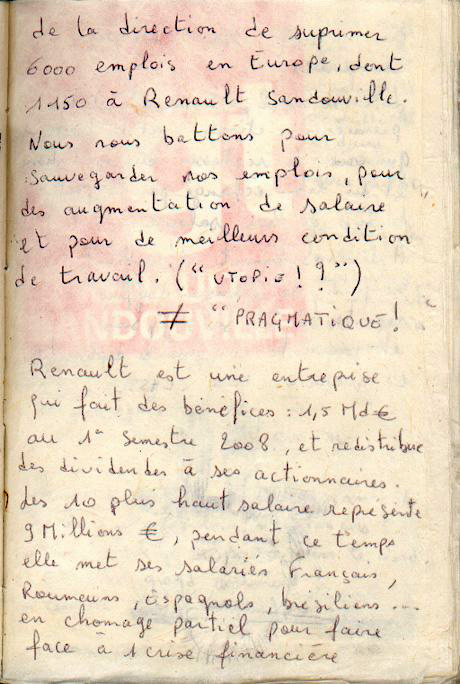 de la direction de suprimer
6000 emplois en Europe, dont
1150 à Renault Sandouville.
Nous nous battons pour
sauvegarder nos emplois, pour
des augmentation de salaire
et pour de meilleurs condition
de travail. ("UTOPIE ! ?")
≠ "PRAGMATIQUE !
ANDOUVILLE
Renault est une entreprise
qui fait des bénéfices : 1,5 Md€
au 1er semestre 2008, et redistribue
des dividendes à ses actionnaires.
Les 10 plus haut salaire représente
9 Millions €, pendant ce temps
elle met ses salariés Français,
Roumeuns, Espagnols, brésiliens ...
en chomage partiel pour faire
face à 1 crise financière